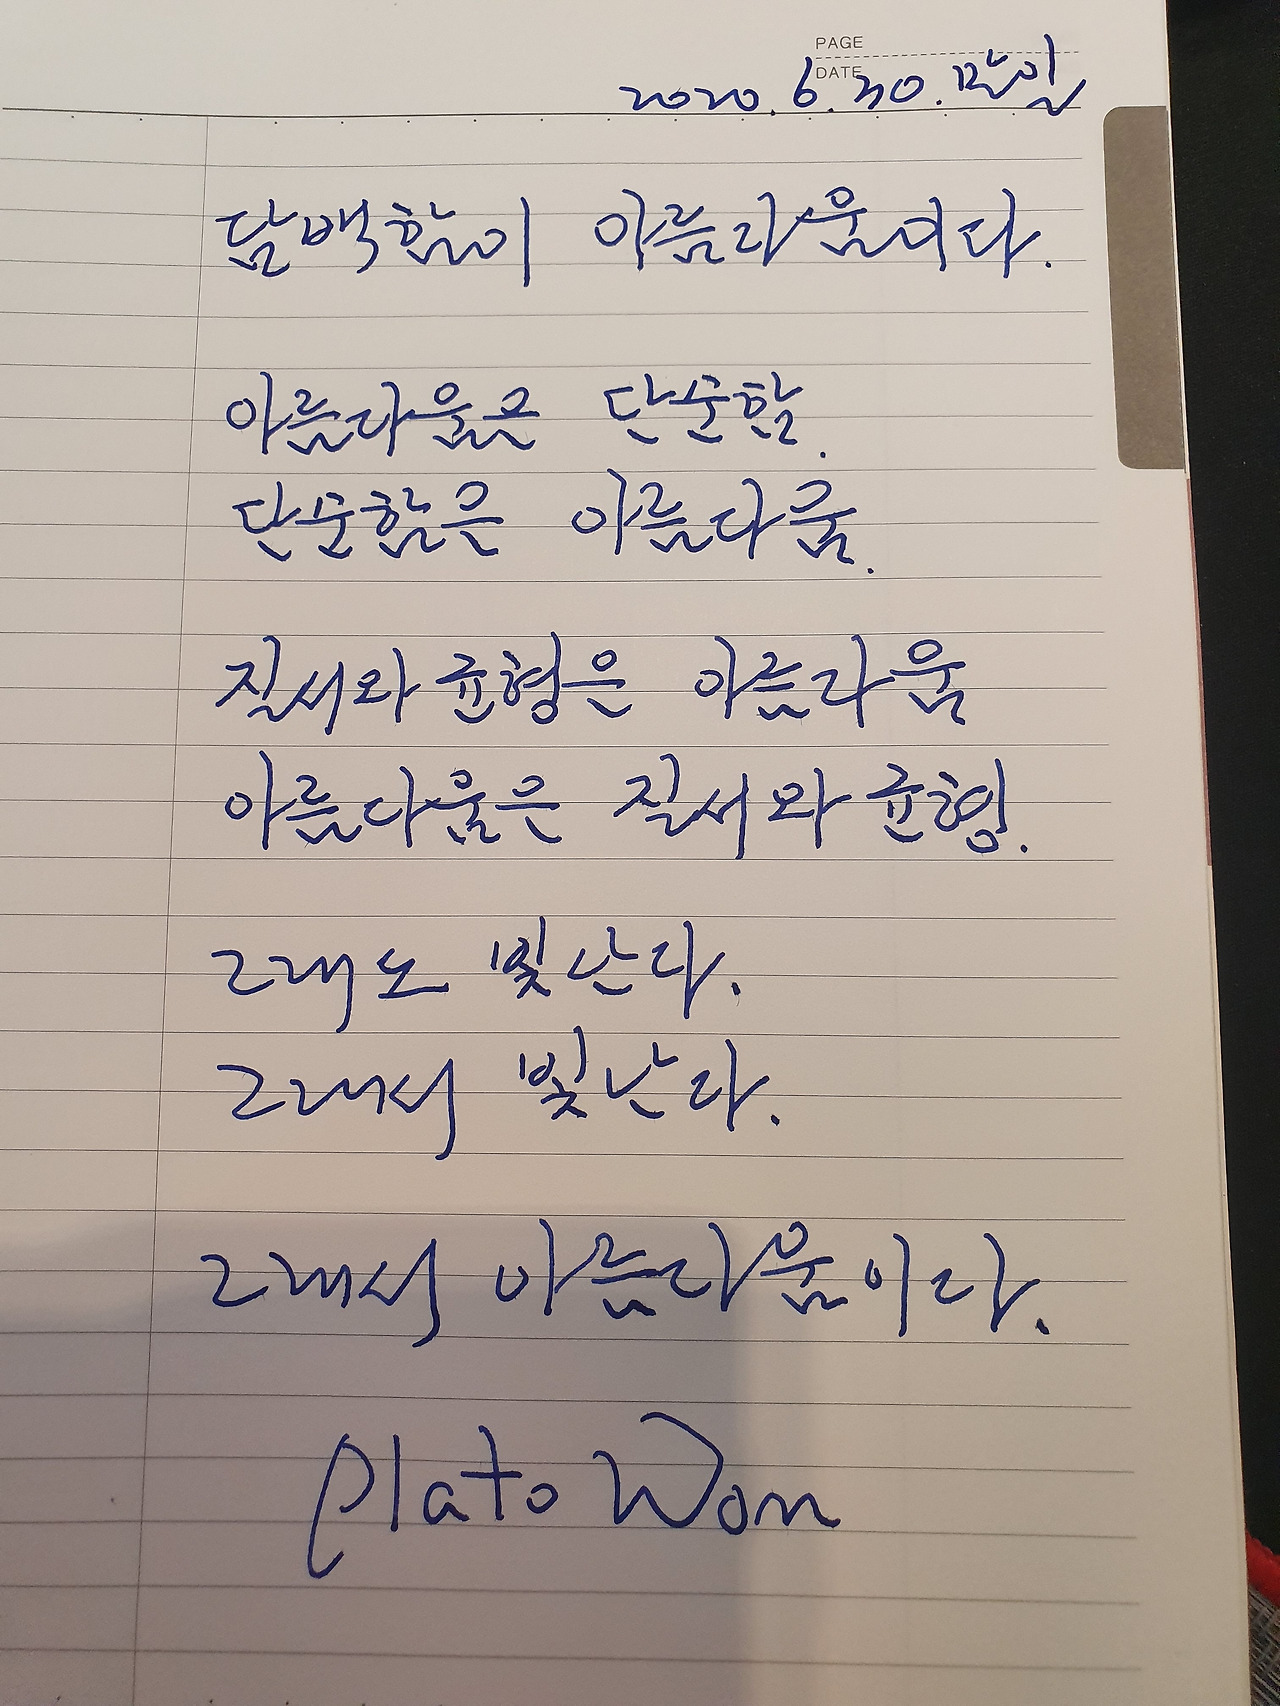 PAGE
DATE
2020. 6. 30. 말일
담백함이 아름다움이다.
아름다움은 단순함.
단순함은 아름다움.
질서와 균형은 아름다움
아름다움은 질서와 균형.
그래도 빛난다.
그래서 빛난다.
그래서 아름다움이다.
Plato Won